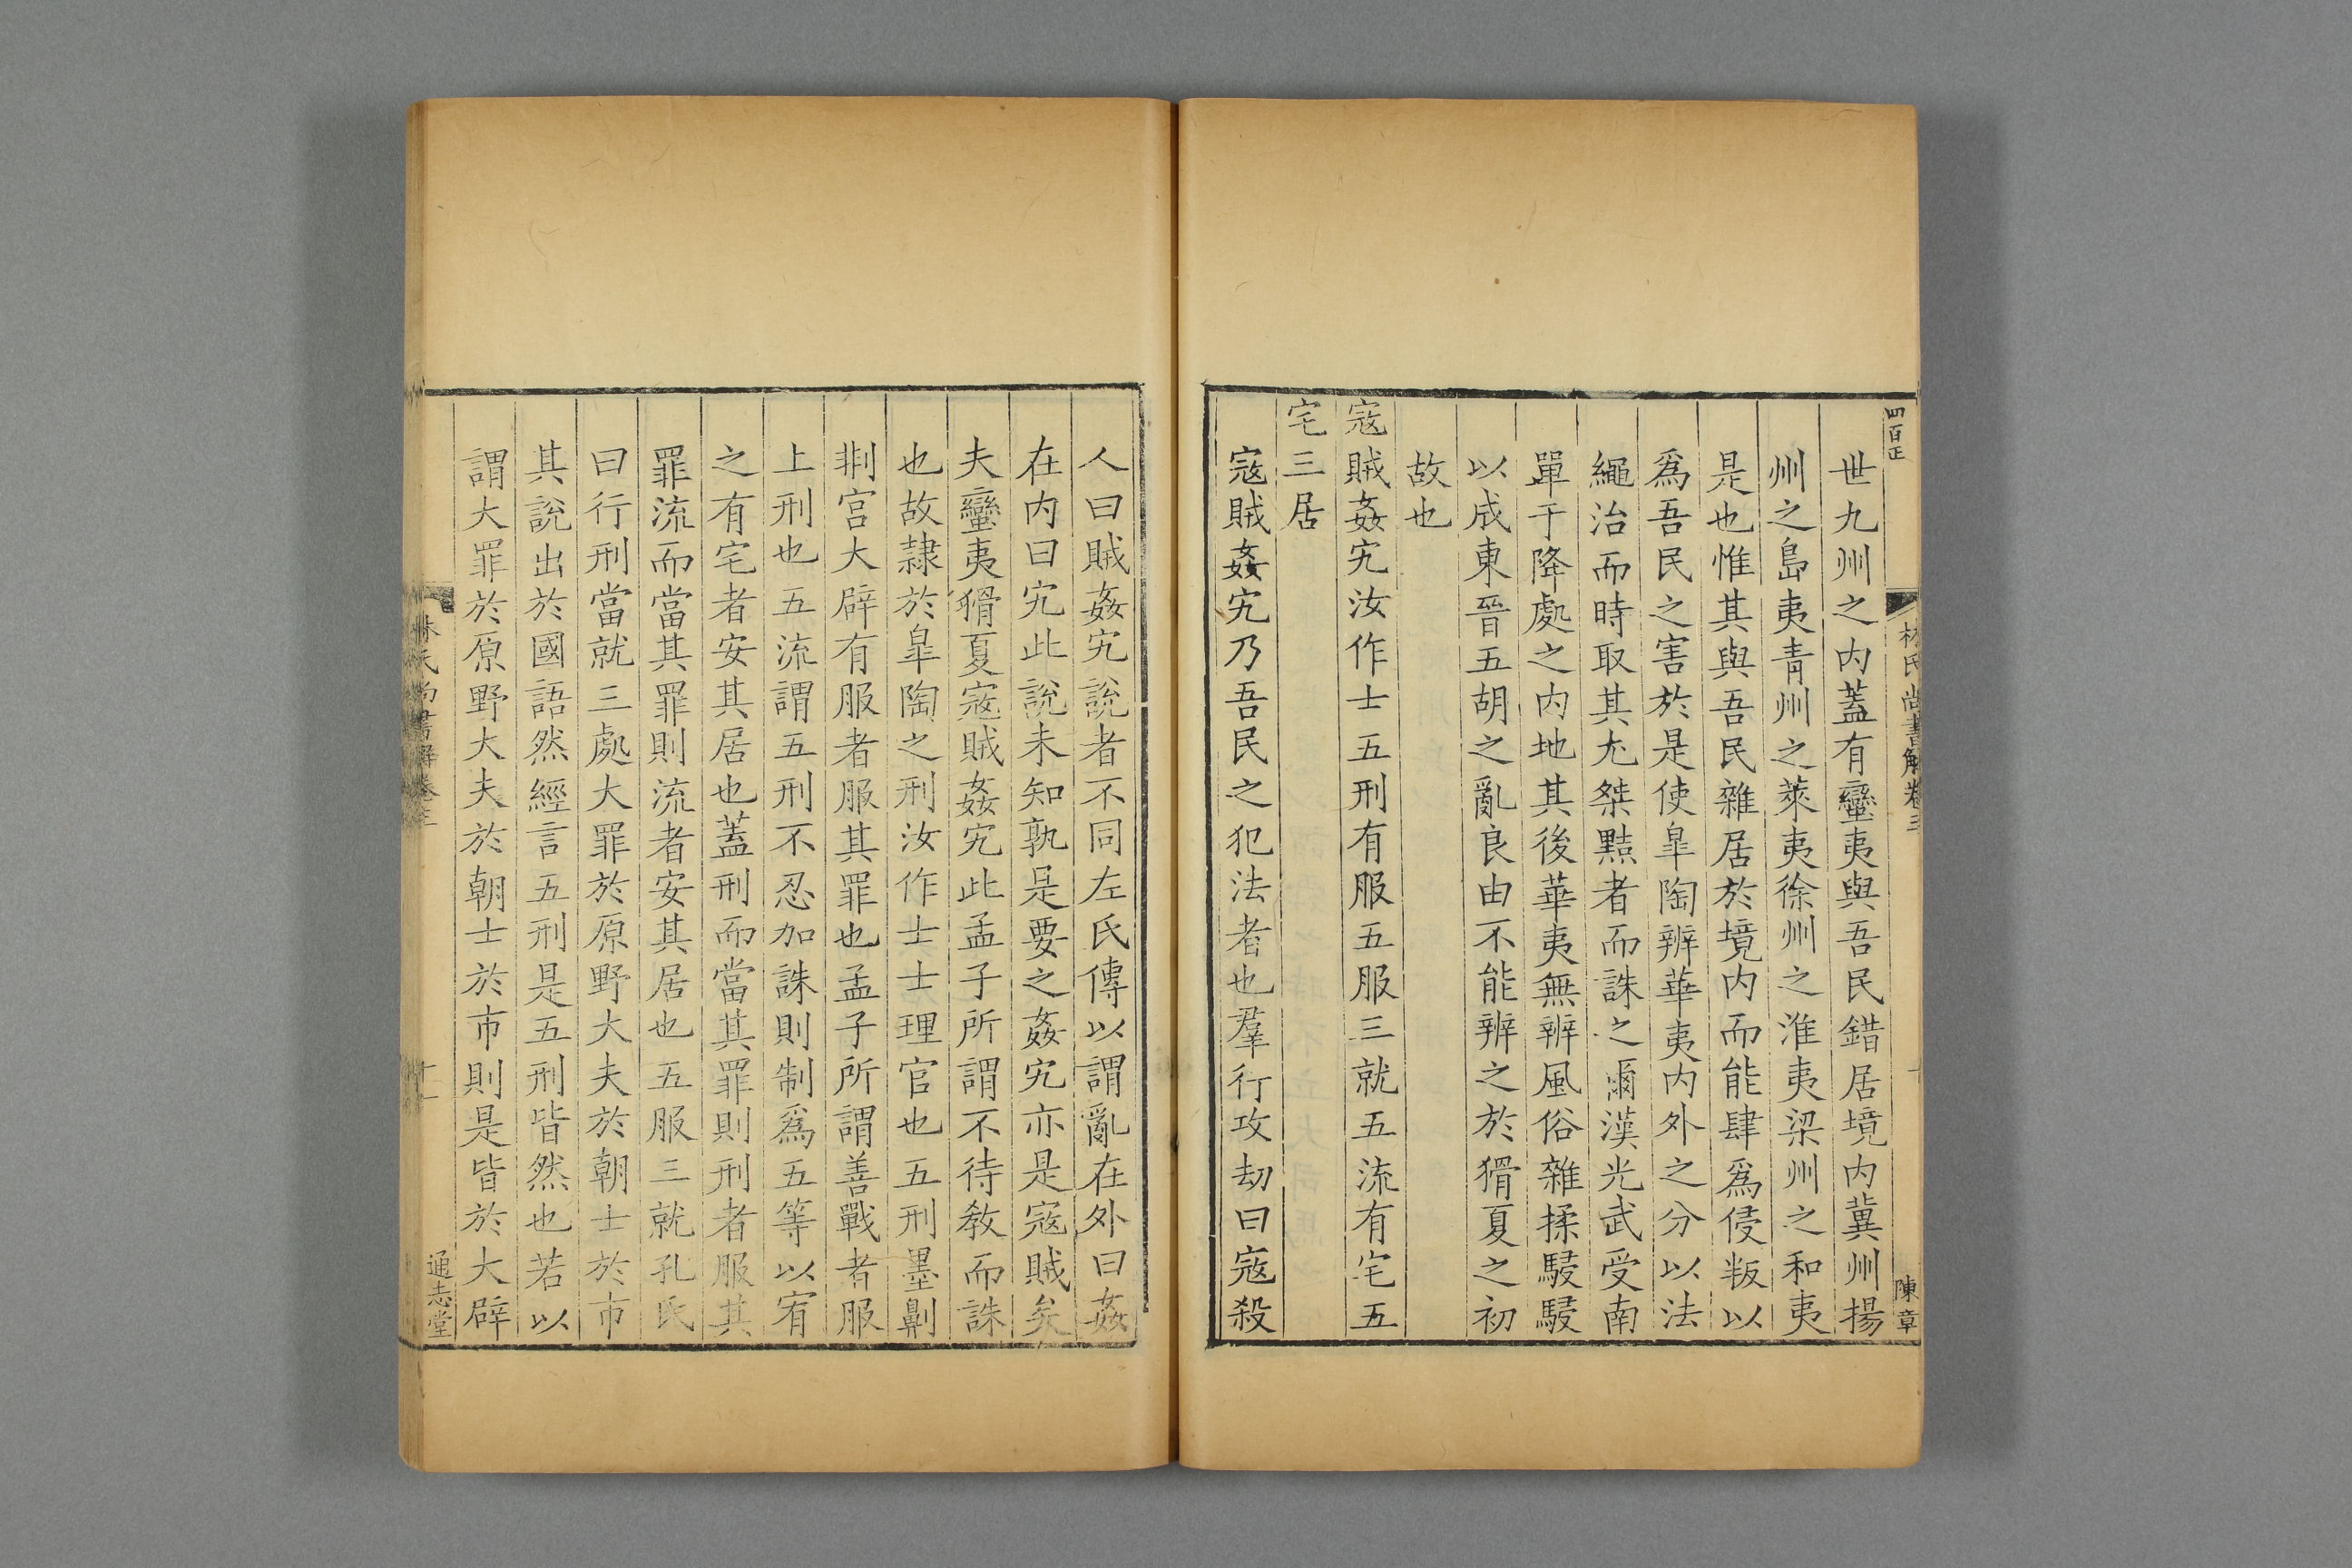 四百正
林氏尚書解卷三
陳章
世九州之内蓋有蠻夷與吾民錯居境内冀州揚
州之島夷青州之萊夷徐州之淮夷梁州之和夷
是也惟其與吾民雜居於境内而能肆爲侵叛以
爲吾民之害於是使皐陶辨華夷内外之分以法
繩治而時取其尤桀黠者而誅之爾漢光武受南
單于降處之内地其後華夷無辨風俗雜揉駸駸
以成東晉五胡之亂良由不能辨之於猾夏之初
故也
寇賊姦宄汝作士五刑有服五服三就五流有宅五
宅三居
寇賊姦宄乃吾民之犯法者也羣行攻劫曰寇殺
人曰賊姦宄說者不同左氏傳以謂亂在外曰姦
在内曰宄此說未知孰是要之姦宄亦是寇賊矣
夫蠻夷猾夏寇賊姦宄此孟子所謂不待敎而誅
也故隷於皐陶之刑汝作士士理官也五刑墨劓
剕宫大辟有服者服其罪也孟子所謂善戰者服
上刑也五流謂五刑不忍加誅則制爲五等以宥
之有宅者安其居也蓋刑而當其罪則刑者服其
罪流而當其罪則流者安其居也五服三就孔氏
曰行刑當就三處大罪於原野大夫於朝士於市
其說出於國語然經言五刑是五刑皆然也若以
謂大罪於原野大夫於朝士於市則是皆於大辟
林氏尚書解卷三
十一
通志堂